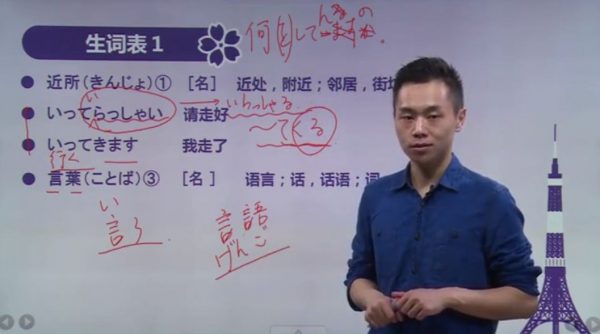 生词表1
何回してんすか
います の
● 近所(きんじょ)① [名] 近处,附近;邻居,街坊
● いってらっしゃい 请走好
い
いらっしゃる
~てくる
● いってきます 我走了
行く
● 言葉(ことば)③ [名] 语言;话,话语;词
い
言う
言語
げんご